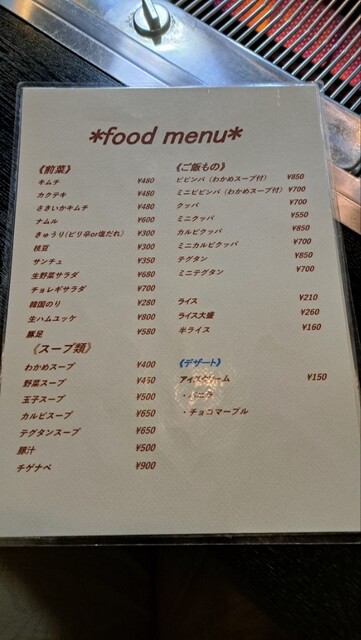 *food menu*
《前菜》
キムチ ¥480
カクテキ ¥480
さきいかキムチ ¥480
ナムル ¥600
きゅうり(ピリ辛or塩だれ) ¥300
枝豆 ¥300
サンチュ ¥350
生野菜サラダ ¥680
チョレギサラダ ¥700
韓国のり ¥280
生ハムユッケ ¥800
豚足 ¥580
《スープ類》
わかめスープ ¥400
野菜スープ ¥450
玉子スープ ¥500
カルビスープ ¥650
テグタンスープ ¥650
豚汁 ¥500
チゲナベ ¥900
《ご飯もの》
ビビンバ（わかめスープ付） ¥850
ミニビビンバ（わかめスープ付） ¥700
クッパ ¥700
ミニクッパ ¥550
カルビクッパ ¥850
ミニカルビクッパ ¥700
テグタン ¥850
ミニテグタン ¥700
ライス ¥210
ライス大盛 ¥260
半ライス ¥160
《デザート》
アイスクリーム ¥150
・バニラ
・チョコマーブル